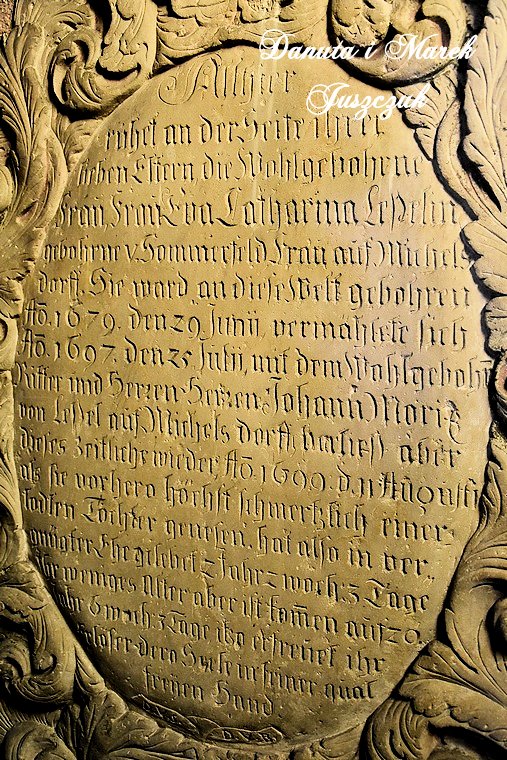 Danuta i Marek
Juszczuk
Allhier
ruhet an der Seite ihrer
lieben Eltern die Wohlgebohrne
Frau, Frau Eva Catharina Lesselin
gebohrne v. Sommerfeld Frau auf Michels
dorff. Sie ward an diese Welt gebohren
Ao. 1679. den 29. Junij, vermählete sich
Ao. 1697. den 25 Julij, mit dem Wohlgebohr
Ritter und Herren Herren Johann Moritz
von Lessel auf Michels dorff, verlies aber
dieses Zeitliche wieder Ao. 1699. d. 11 Augusti
als sie vorhero höchst schmertzlich einer
todten Tochter genesen. hat also in ver
gnügter Ehe gelebet 2 Jahr 2 woch: 3 Tage
ihr weniges Alter aber ist kom̄en auf 20.
Jahr 6 woch: 3 Tage itzo erfreuet ihr
Erlöser dero Seele in seiner gnal
freyen Hand.